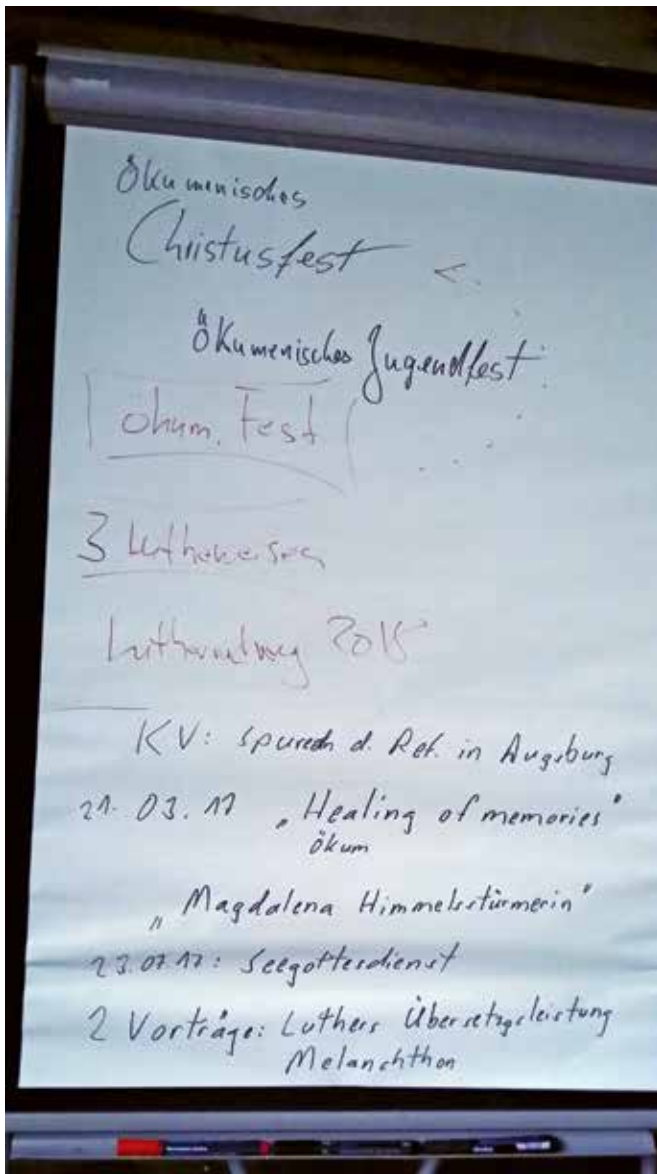 Ökumenisches
Christusfest <
Ökumenisches Jugendfest
ökum. Fest
3
2015
KV: Spuren d. Ref. in Augsburg
21.03.17 „Healing of memories"
ökum
„Magdalena Himmelsstürmerin"
23.07.17: Seegottesdienst
2 Vorträge: Luthers Übersetzgsleistung
Melanchthon